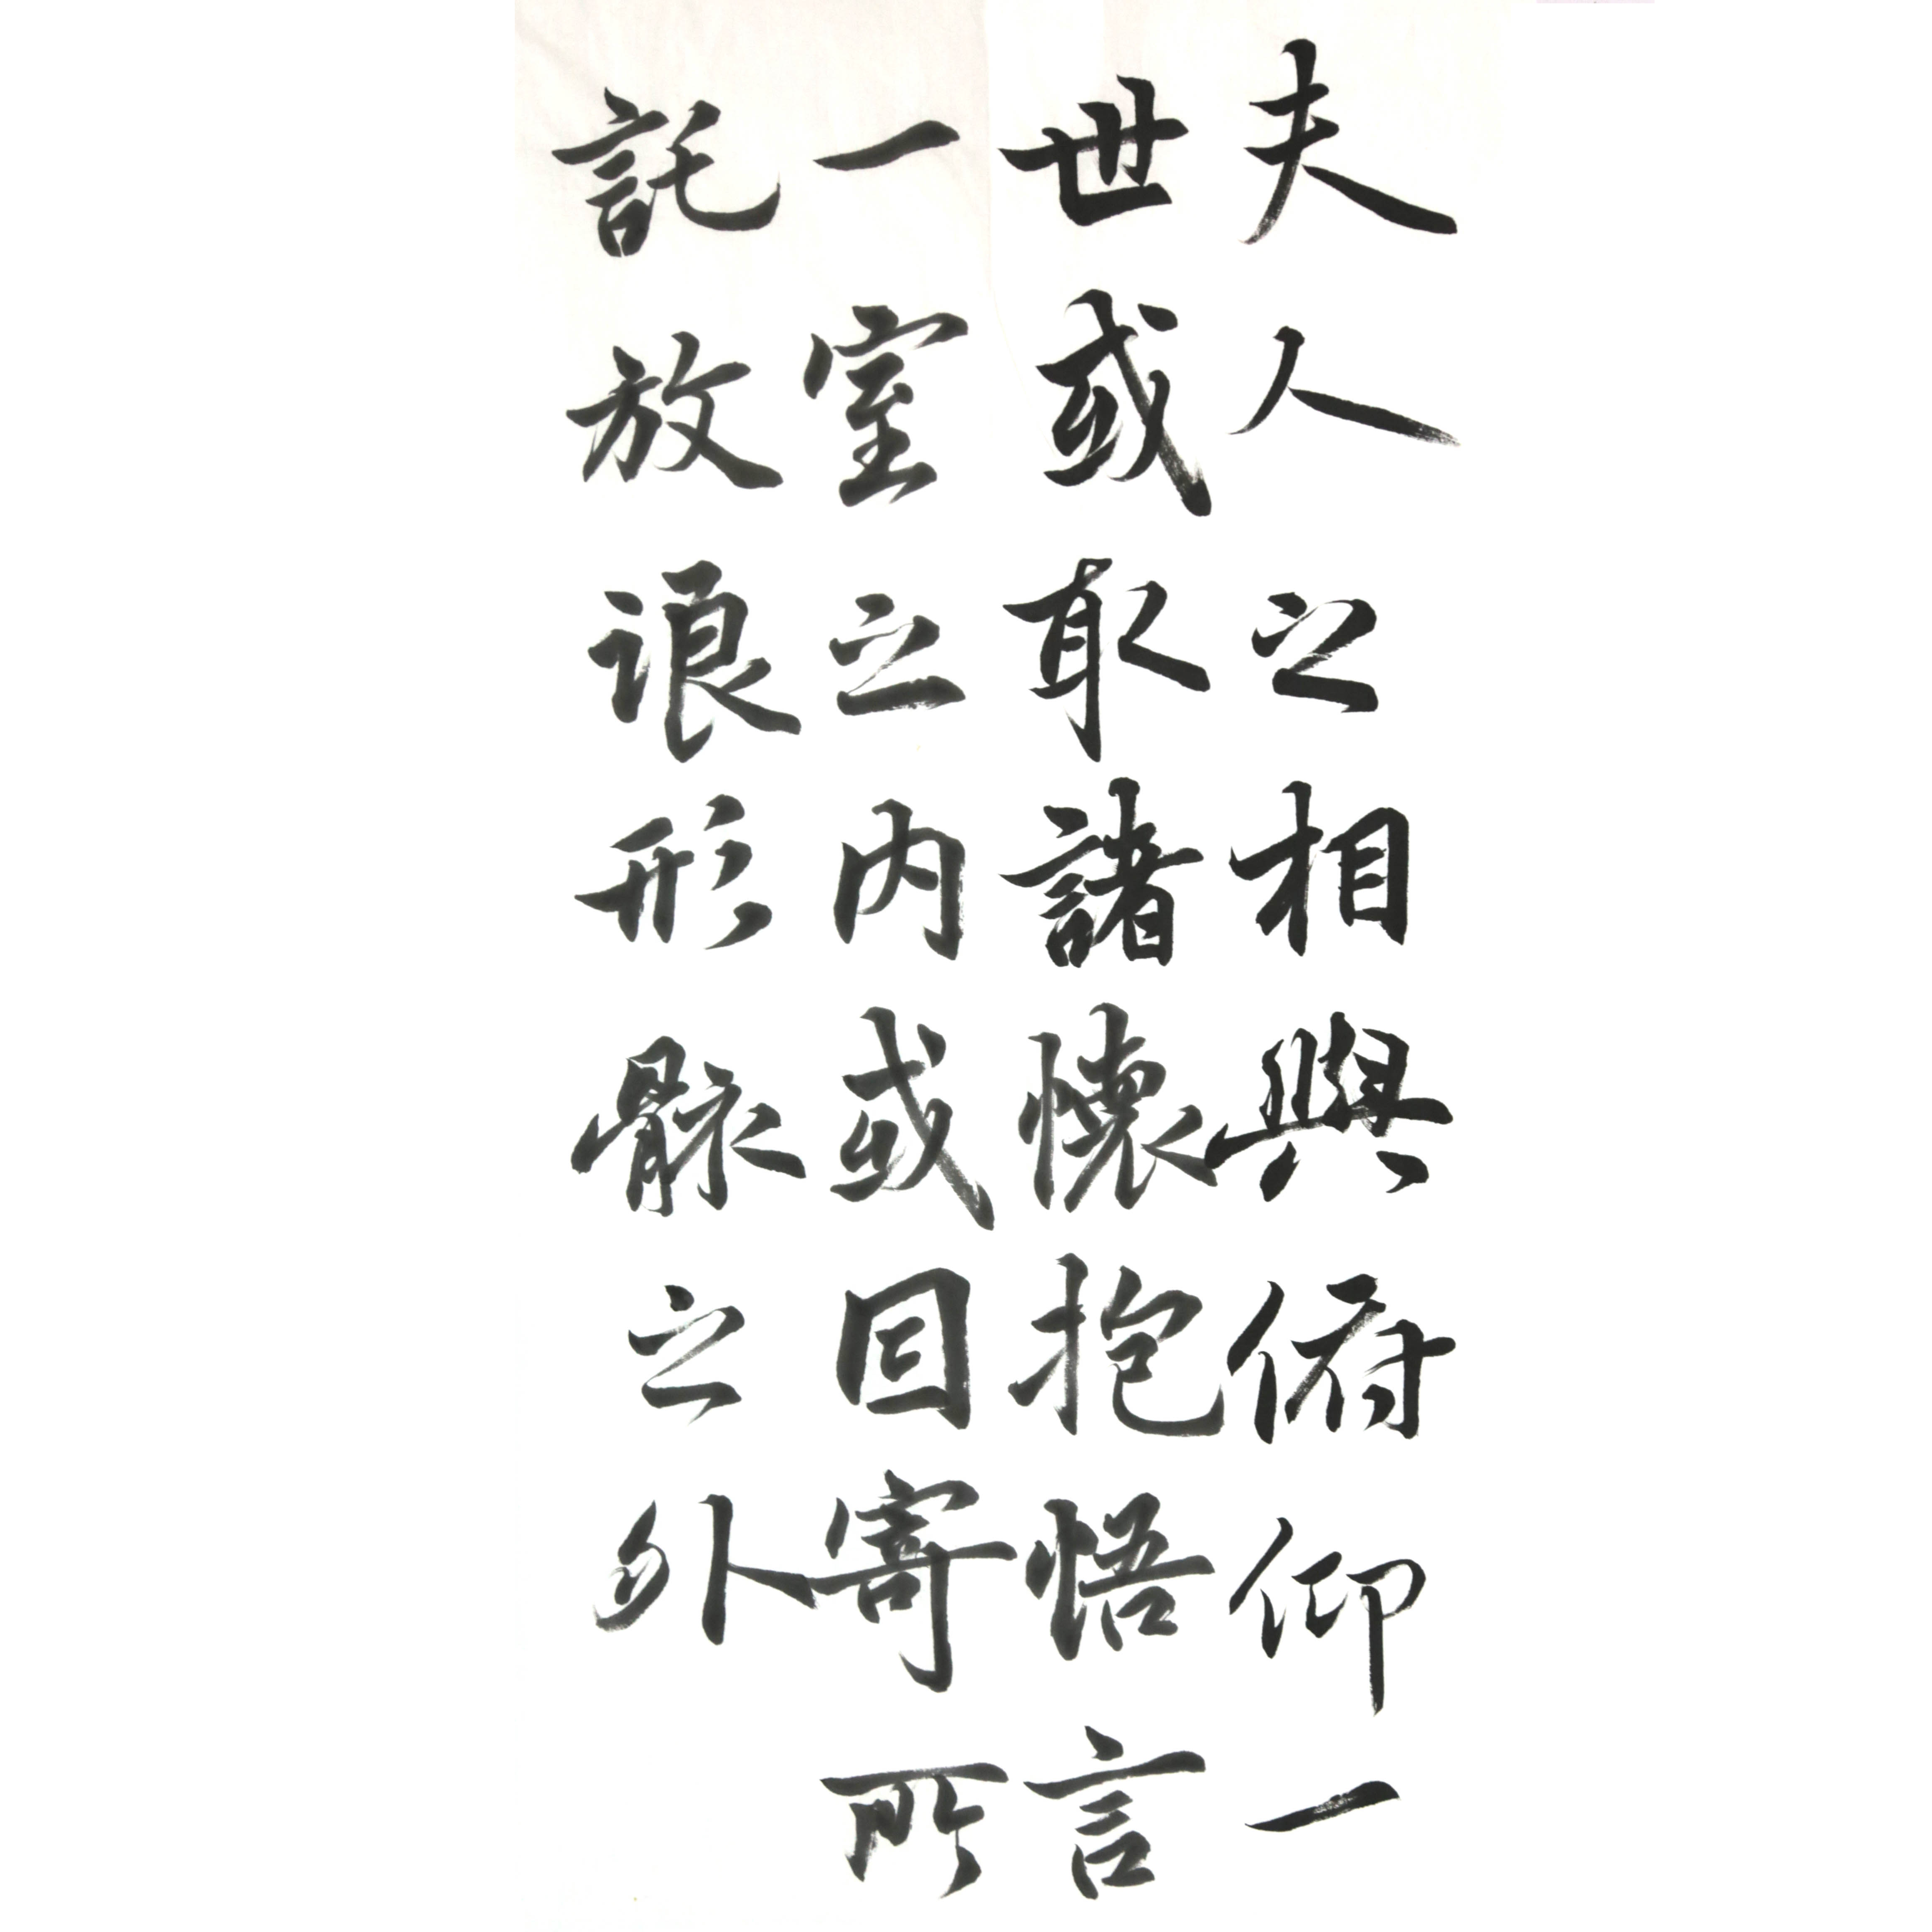 夫人之相與俯仰一
世或取諸懷抱悟言
一室之内或因寄所
託放浪形骸之外